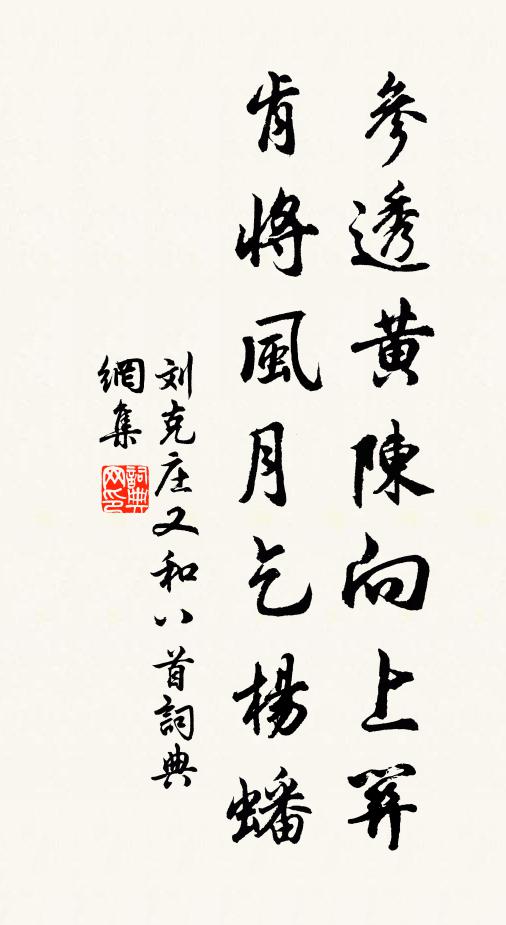 參透黄陳向上關
肯將風月乞楊蟠
刘克庄又和八首詞典
網集
詞典网印